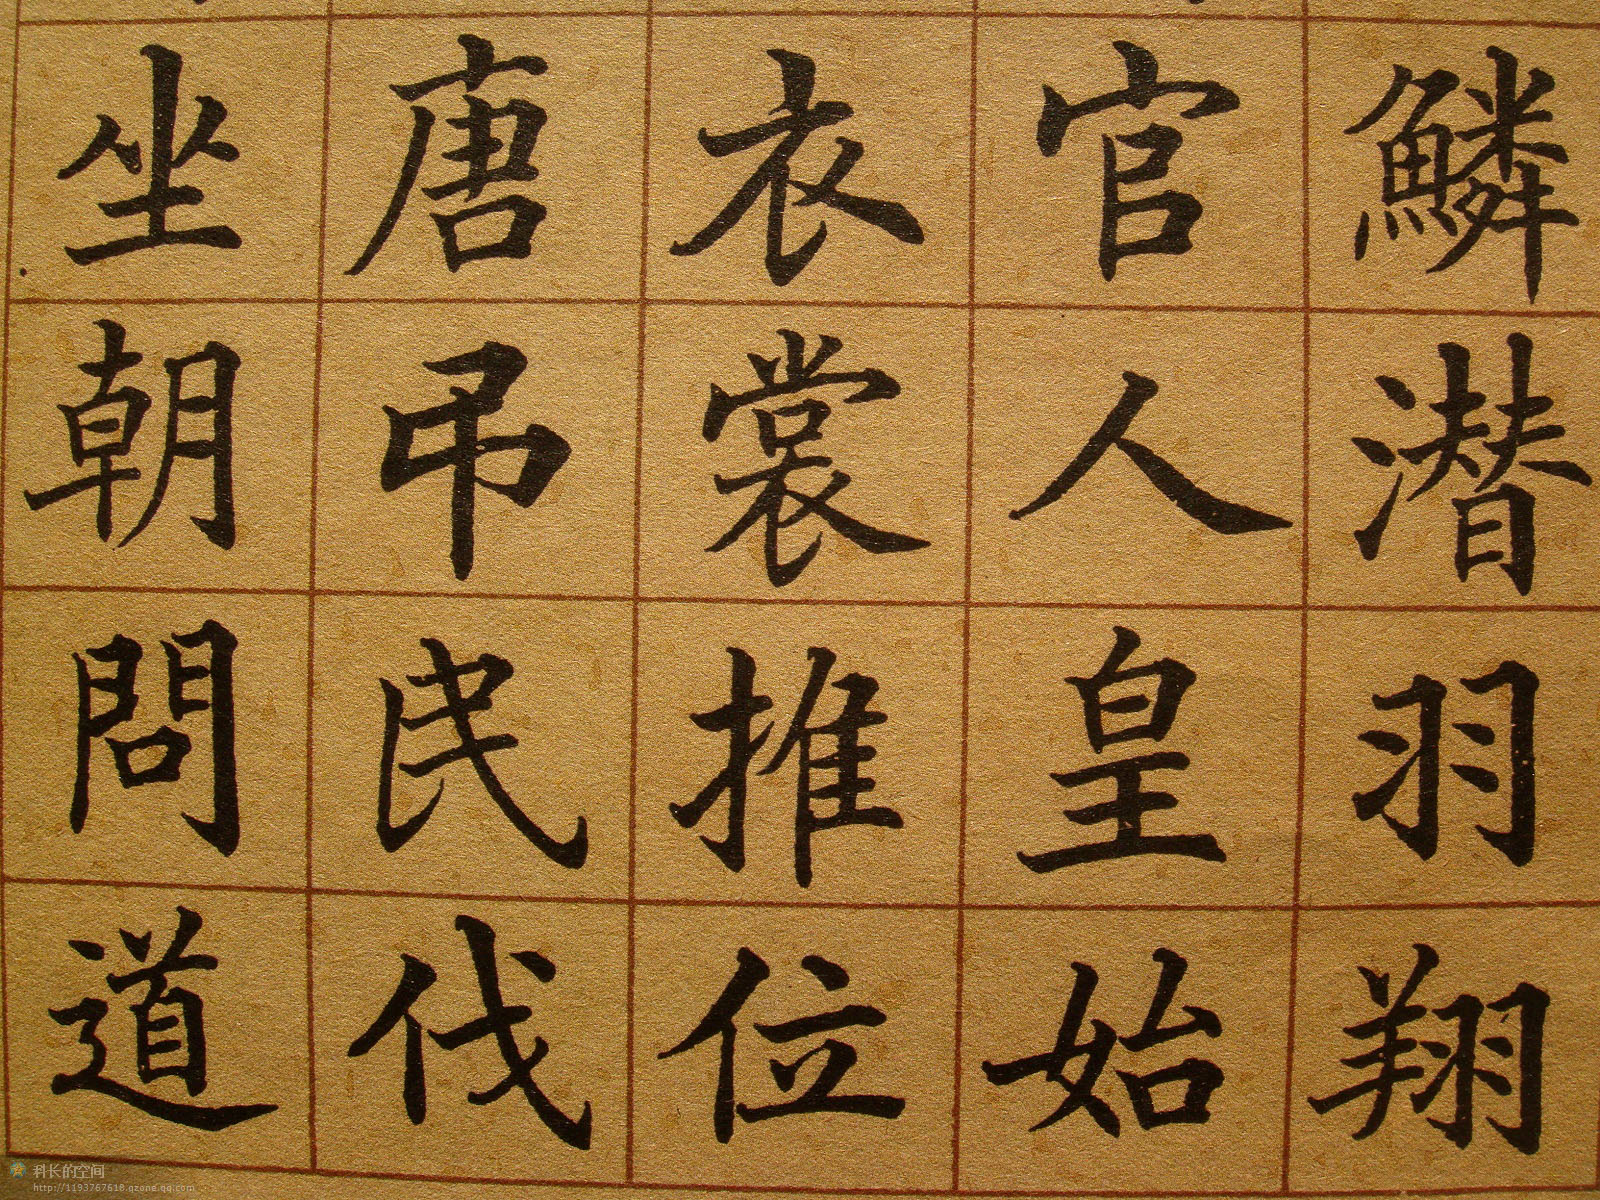 鱗潛羽翔
官人皇始
衣裳推位
唐弔民伐
坐朝問道
科长的空间
http://1193767618.qzone.qq.com